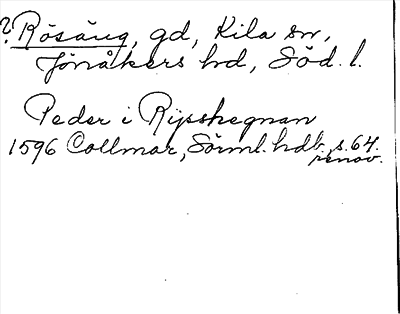 ? Rösäng, gd, Kila sn,
Jönåkers hd, Söd. l.
Peder i Rijsshegnan
1596 Collmar, Sörml. hdb. s. 64.
renov.